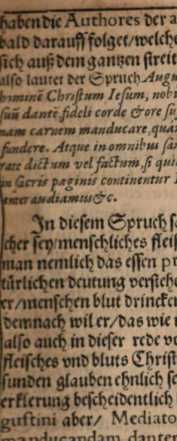 haben die Authores der a
bald darauff folget/welche
sich auß dem gantzen streit
also lautet der Spruch Augu
hominẽ Christum Iesum, nobi
suũ dantẽ, fideli corde & ore su
nam carnem manducare, qua
fundere. Atque in omnibus san
rate dictum vel factum, si quid
in sacris paginis continentur
anter audiamus &c.
In diesem Spruch s
cher sey/menschliches fleis
man nemlich das essen pr
türlichen deutung verstehe
er/menschen blut drincken
demnach wil er/das wie
also auch in dieser rede vo
fleisches vnd bluts Christ
sunden glauben ehnlich se
erklerung bescheidentlich
gustini aber/ Mediato
manducandam dante